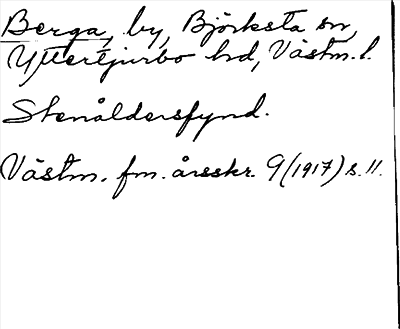 Berga, by, Björksta sn,
Yttertjurbo hd, Västm. l.
Stenåldersfynd.
Västm. fm. årsskr. 9 (1917) s. 11.